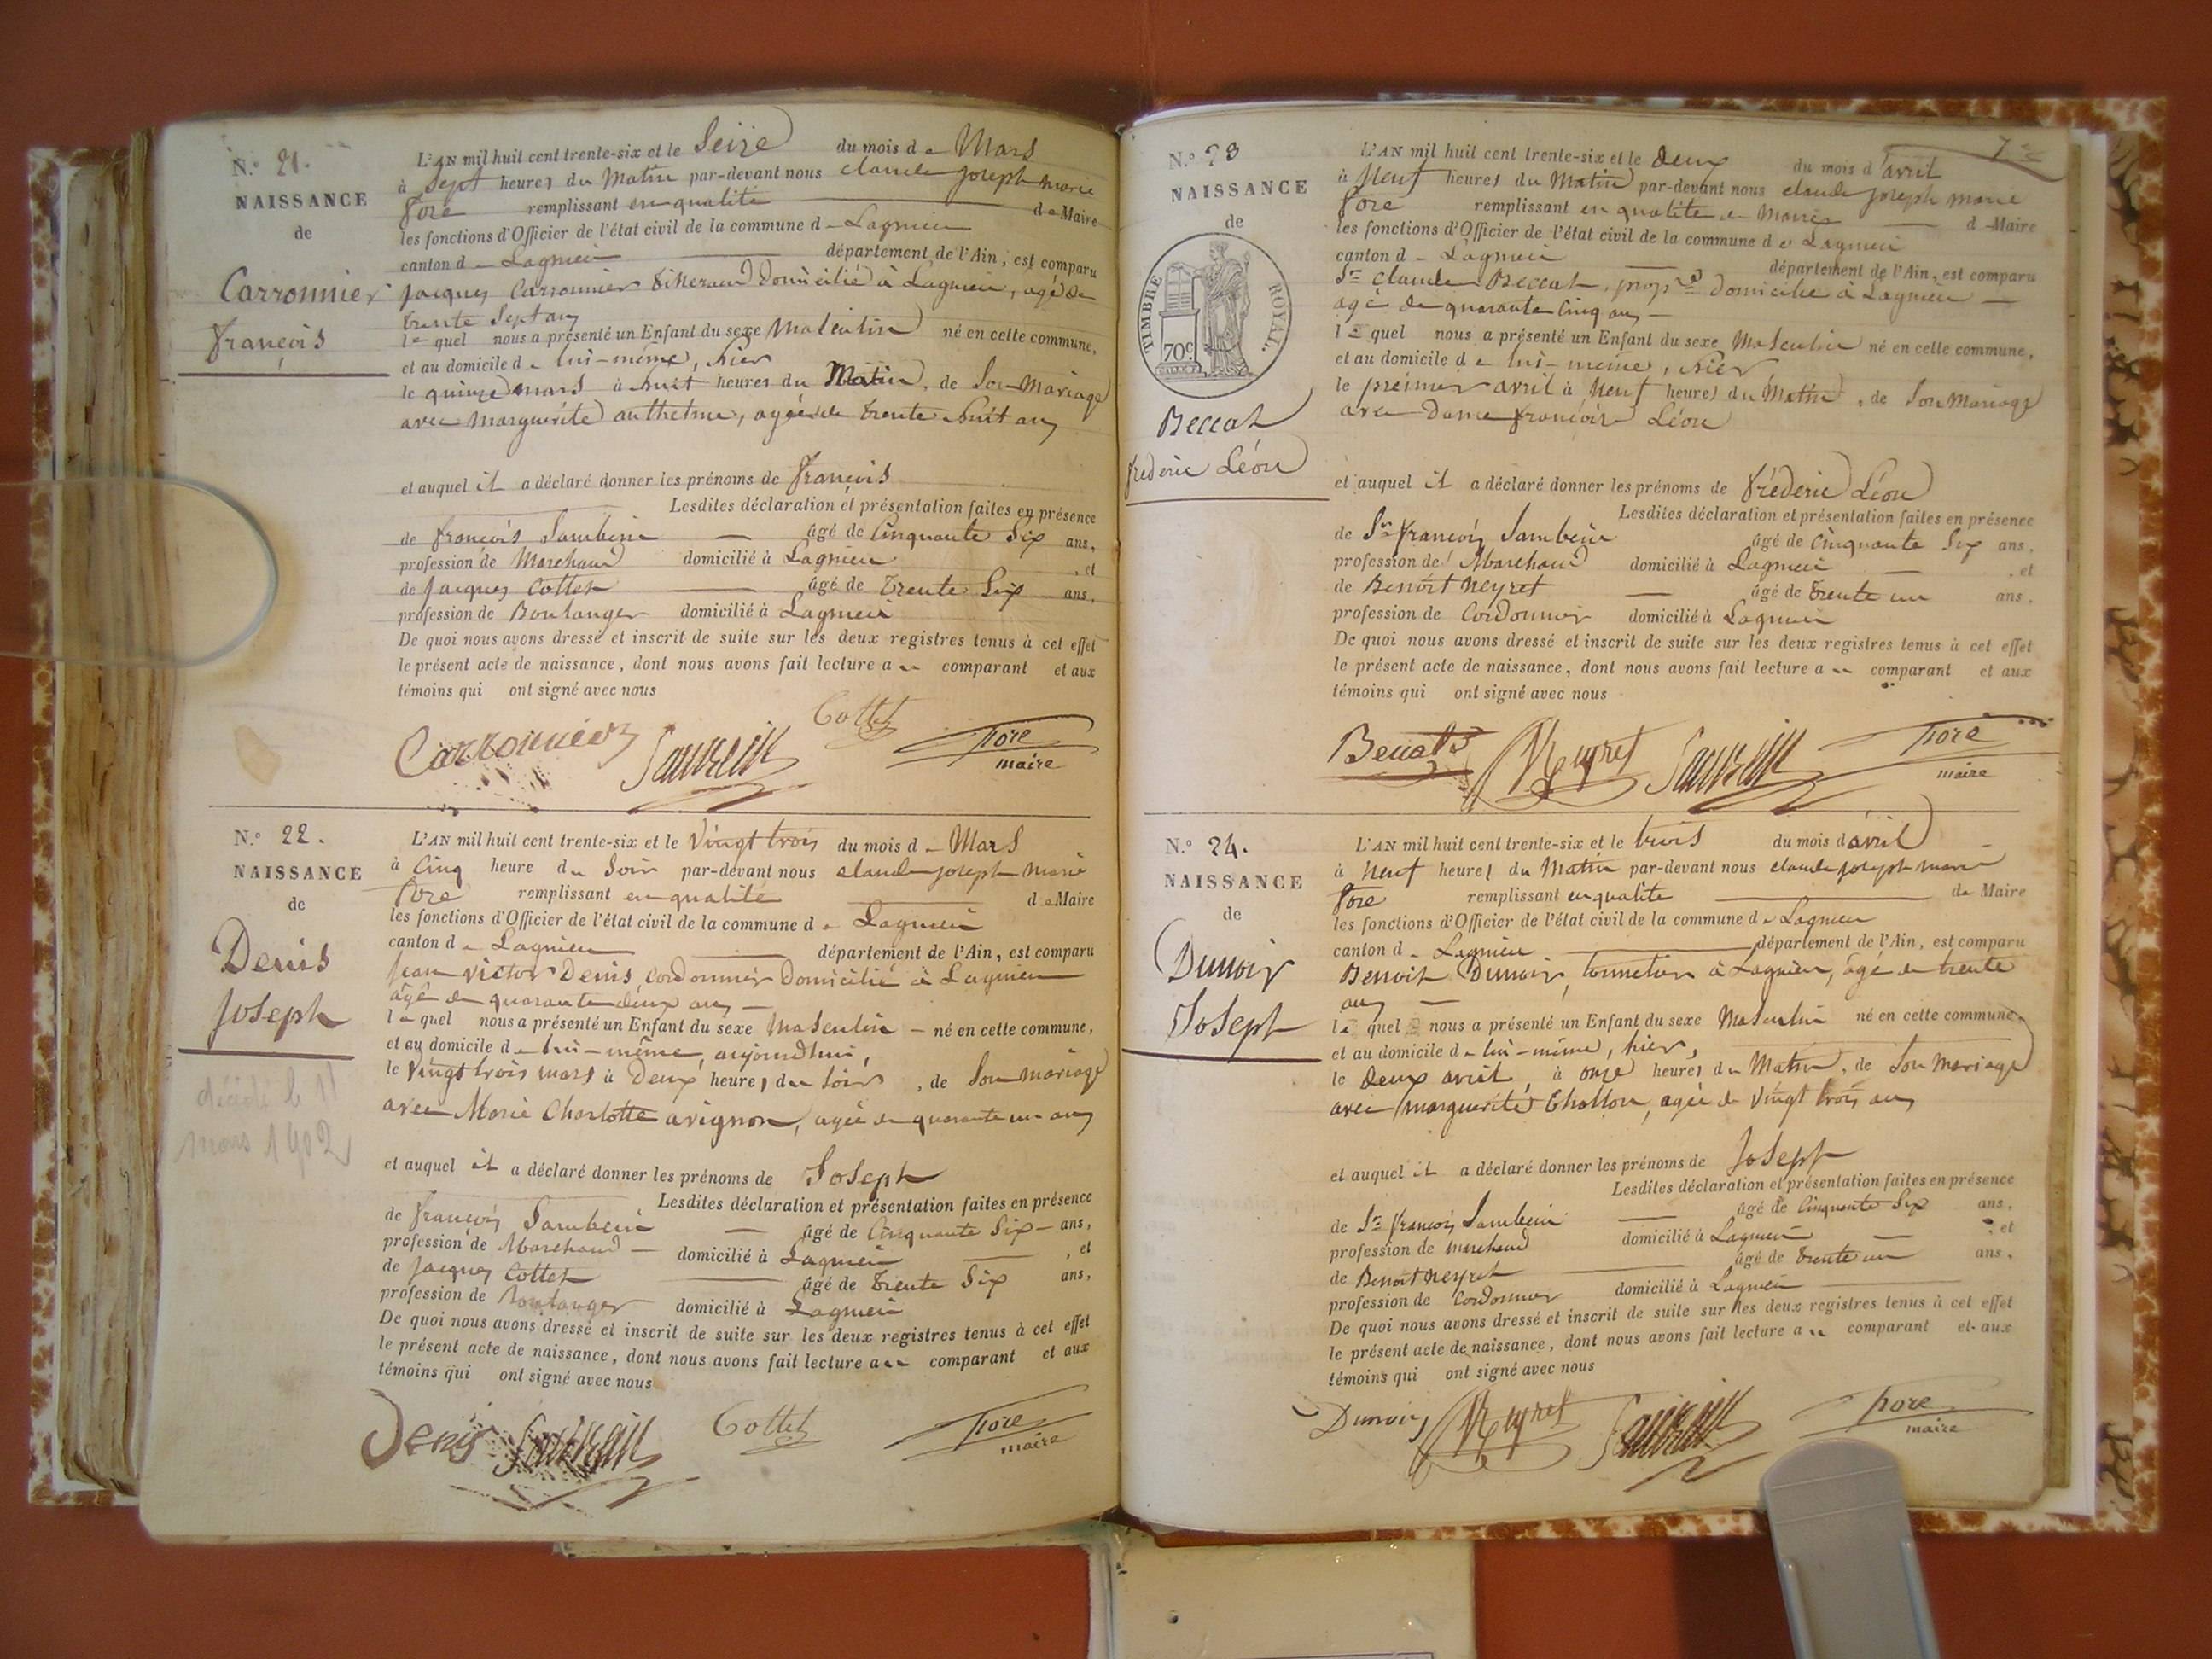 N.º 21.
NAISSANCE
de
Carronnier
françois
L'AN mil huit cent trente-six et le Seize du mois de Mars
à Sept heures du Matin par-devant nous claude joseph marie
fore remplissant en qualité de Maire
les fonctions d'Officier de l'état civil de la commune de Lagnieu
canton de Lagnieu département de l'Ain, est comparu
jacques Carronnier domicilié à Lagnieu, agé de
trente Sept ans
le quel nous a présenté un Enfant du sexe Masculin né en cette commune,
et au domicile de lui-même, hier
le quinze mars à huit heures du Matin, de Son Mariage
avec Marguerite anthelme, agée de trente huit ans
et auquel il a déclaré donner les prénoms de françois
Lesdites déclaration et présentation faites en présence
de françois Sambein âgé de Cinquante Six ans,
profession de Marchand domicilié à Lagnieu, et
de jacques Cottet âgé de trente Six ans,
profession de Boulanger domicilié à Lagnieu
De quoi nous avons dressé et inscrit de suite sur les deux registres tenus à cet effet
le présent acte de naissance, dont nous avons fait lecture au comparant et aux
témoins qui ont signé avec nous
Carronnier Cottet fore
maire
N.º 22.
NAISSANCE
de
Denis
Joseph
décédé le 11
mars 1902
L'AN mil huit cent trente-six et le Vingt trois du mois de Mars
à Cinq heure du Soir par-devant nous claude joseph marie
fore remplissant en qualité de Maire
les fonctions d'Officier de l'état civil de la commune de Lagnieu
canton de Lagnieu département de l'Ain, est comparu
jean victor Denis, cordonnier Domicilié à Lagnieu
âgé de quarante deux ans
le quel nous a présenté un Enfant du sexe Masculin né en cette commune,
et au domicile de lui-même, aujourdhui,
le Vingt trois mars à Deux heures du Soir, de Son mariage
avec Marie Charlotte avignon, agée de quarante un ans
et auquel il a déclaré donner les prénoms de Joseph
Lesdites déclaration et présentation faites en présence
de françois Sambein âgé de Cinquante Six ans,
profession de Marchand domicilié à Lagnieu, et
de jacques Cottet âgé de trente Six ans,
profession de Boulanger domicilié à Lagnieu
De quoi nous avons dressé et inscrit de suite sur les deux registres tenus à cet effet
le présent acte de naissance, dont nous avons fait lecture au comparant et aux
témoins qui ont signé avec nous
Denis Cottet fore
maire
N.º 23
NAISSANCE
de
TIMBRE ROYAL.
70c
Beccat
frederic Léon
L'AN mil huit cent trente-six et le deux du mois d'avril
à Neuf heures du Matin par-devant nous claude joseph marie
fore remplissant en qualité de Maire de Maire
les fonctions d'Officier de l'état civil de la commune de Lagnieu
canton de Lagnieu département de l'Ain, est comparu
Sr claude Beccat, propre domicilié à Lagnieu
agé de quarante Cinq ans
le quel nous a présenté un Enfant du sexe Masculin né en cette commune,
et au domicile de lui-même, hier
le premier avril à Neuf heures du Matin, de Son Mariage
avec Dame françoise Léon
et auquel il a déclaré donner les prénoms de fréderic Léon
Lesdites déclaration et présentation faites en présence
de Sr françois Sambein âgé de Cinquante Six ans,
profession de Marchand domicilié à Lagnieu, et
de Benoit Neyret âgé de trente un ans,
profession de Cordonnier domicilié à Lagnieu
De quoi nous avons dressé et inscrit de suite sur les deux registres tenus à cet effet
le présent acte de naissance, dont nous avons fait lecture au comparant et aux
témoins qui ont signé avec nous
Beccat Neyret fore
maire
N.º 24.
NAISSANCE
de
Dunoir
Joseph
L'AN mil huit cent trente-six et le trois du mois d'avril
à Neuf heures du Matin par-devant nous claude joseph marie
fore remplissant en qualité de Maire
les fonctions d'Officier de l'état civil de la commune de Lagnieu
canton de Lagnieu département de l'Ain, est comparu
Benoit Dunoir, à Lagnieu, âgé de trente
ans
le quel nous a présenté un Enfant du sexe Masculin né en cette commune,
et au domicile de lui-même, hier,
le deux avril à onze heures du Matin, de Son Mariage
avec marguerite Chollon, agée de Vingt trois ans
et auquel il a déclaré donner les prénoms de Joseph
Lesdites déclaration et présentation faites en présence
de Sr françois Sambein âgé de Cinquante Six ans,
profession de marchand domicilié à Lagnieu et
de Benoit Neyret âgé de trente un ans,
profession de Cordonnier domicilié à Lagnieu
De quoi nous avons dressé et inscrit de suite sur les deux registres tenus à cet effet
le présent acte de naissance, dont nous avons fait lecture au comparant et aux
témoins qui ont signé avec nous
Dunoir Neyret fore
maire